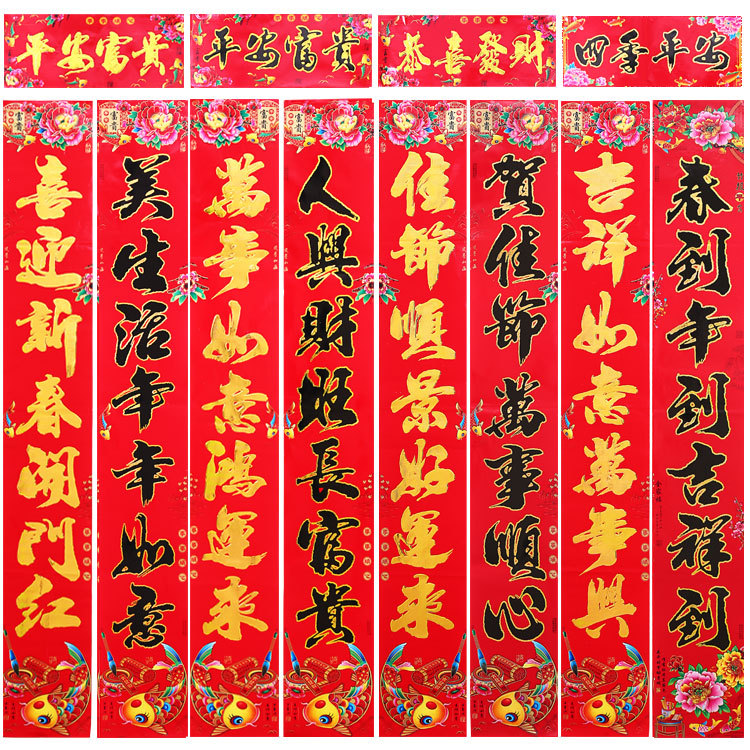 平安富貴
平安富貴
恭喜發財
四季平安
富貴
喜迎新春開門红
富貴
美生活年年如意
富貴
萬事如意鴻運來
富貴
人興財旺長富貴
富貴
佳節順景好運來
富貴
賀佳節萬事順心
富貴
吉祥如意萬事興
春到年到吉祥到